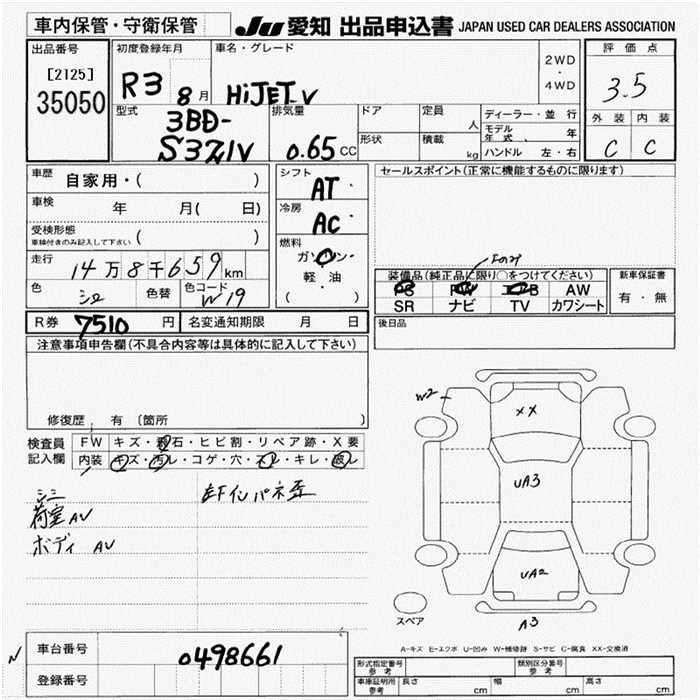 車内保管・守衛保管 JU 愛知 出品申込書 JAPAN USED CAR DEALERS ASSOCIATION
出品番号 [2125] 35050
初度登録年月 R3 8月
車名・グレード HiJET-V
2WD・4WD
評価点 3.5
外装 C 内装 C
型式 3BD-S321V
排気量 0.65 CC
ドア 定員 人
形状 積載 kg
ディーラー・並行
モデル年式 年
ハンドル 左・右
車歴 自家用・( )
車検 年 月( 日)
受検形態 車検付きのみ記入して下さい ( )
走行 14万8千659km
色 シロ 色替 色コード W19
シフト AT・
冷房 AC・
燃料 ガソリン・軽・油 ( )
セールスポイント(正常に機能するものに限ります)
装備品(純正品に限り○をつけてください)
PS PW エアB AW
SR ナビ TV カワシート
新車保証書 有・無
R券 7510 円 名変通知期限 月 日
後日品
注意事項申告欄(不具合内容等は具体的に記入して下さい)
修復歴 有 〔箇所 〕
検査員記入欄
FW キズ・飛石・ヒビ割・リペア跡・X要
内装 キズ・汚レ・コゲ・穴・スレ・キレ・破レ
シミ
荷室AU
ボディ AU
W2
XX
UA3
UA2
A3
スペア
A-キズ E-エクボ U-凹み W-補修跡 S-サビ C-腐食 XX-交換済
車台番号 0498661
登録番号
形式指定番号 参考
類別区分番号 参考
車庫証明用 参考 長さ cm 幅 cm 高さ cm